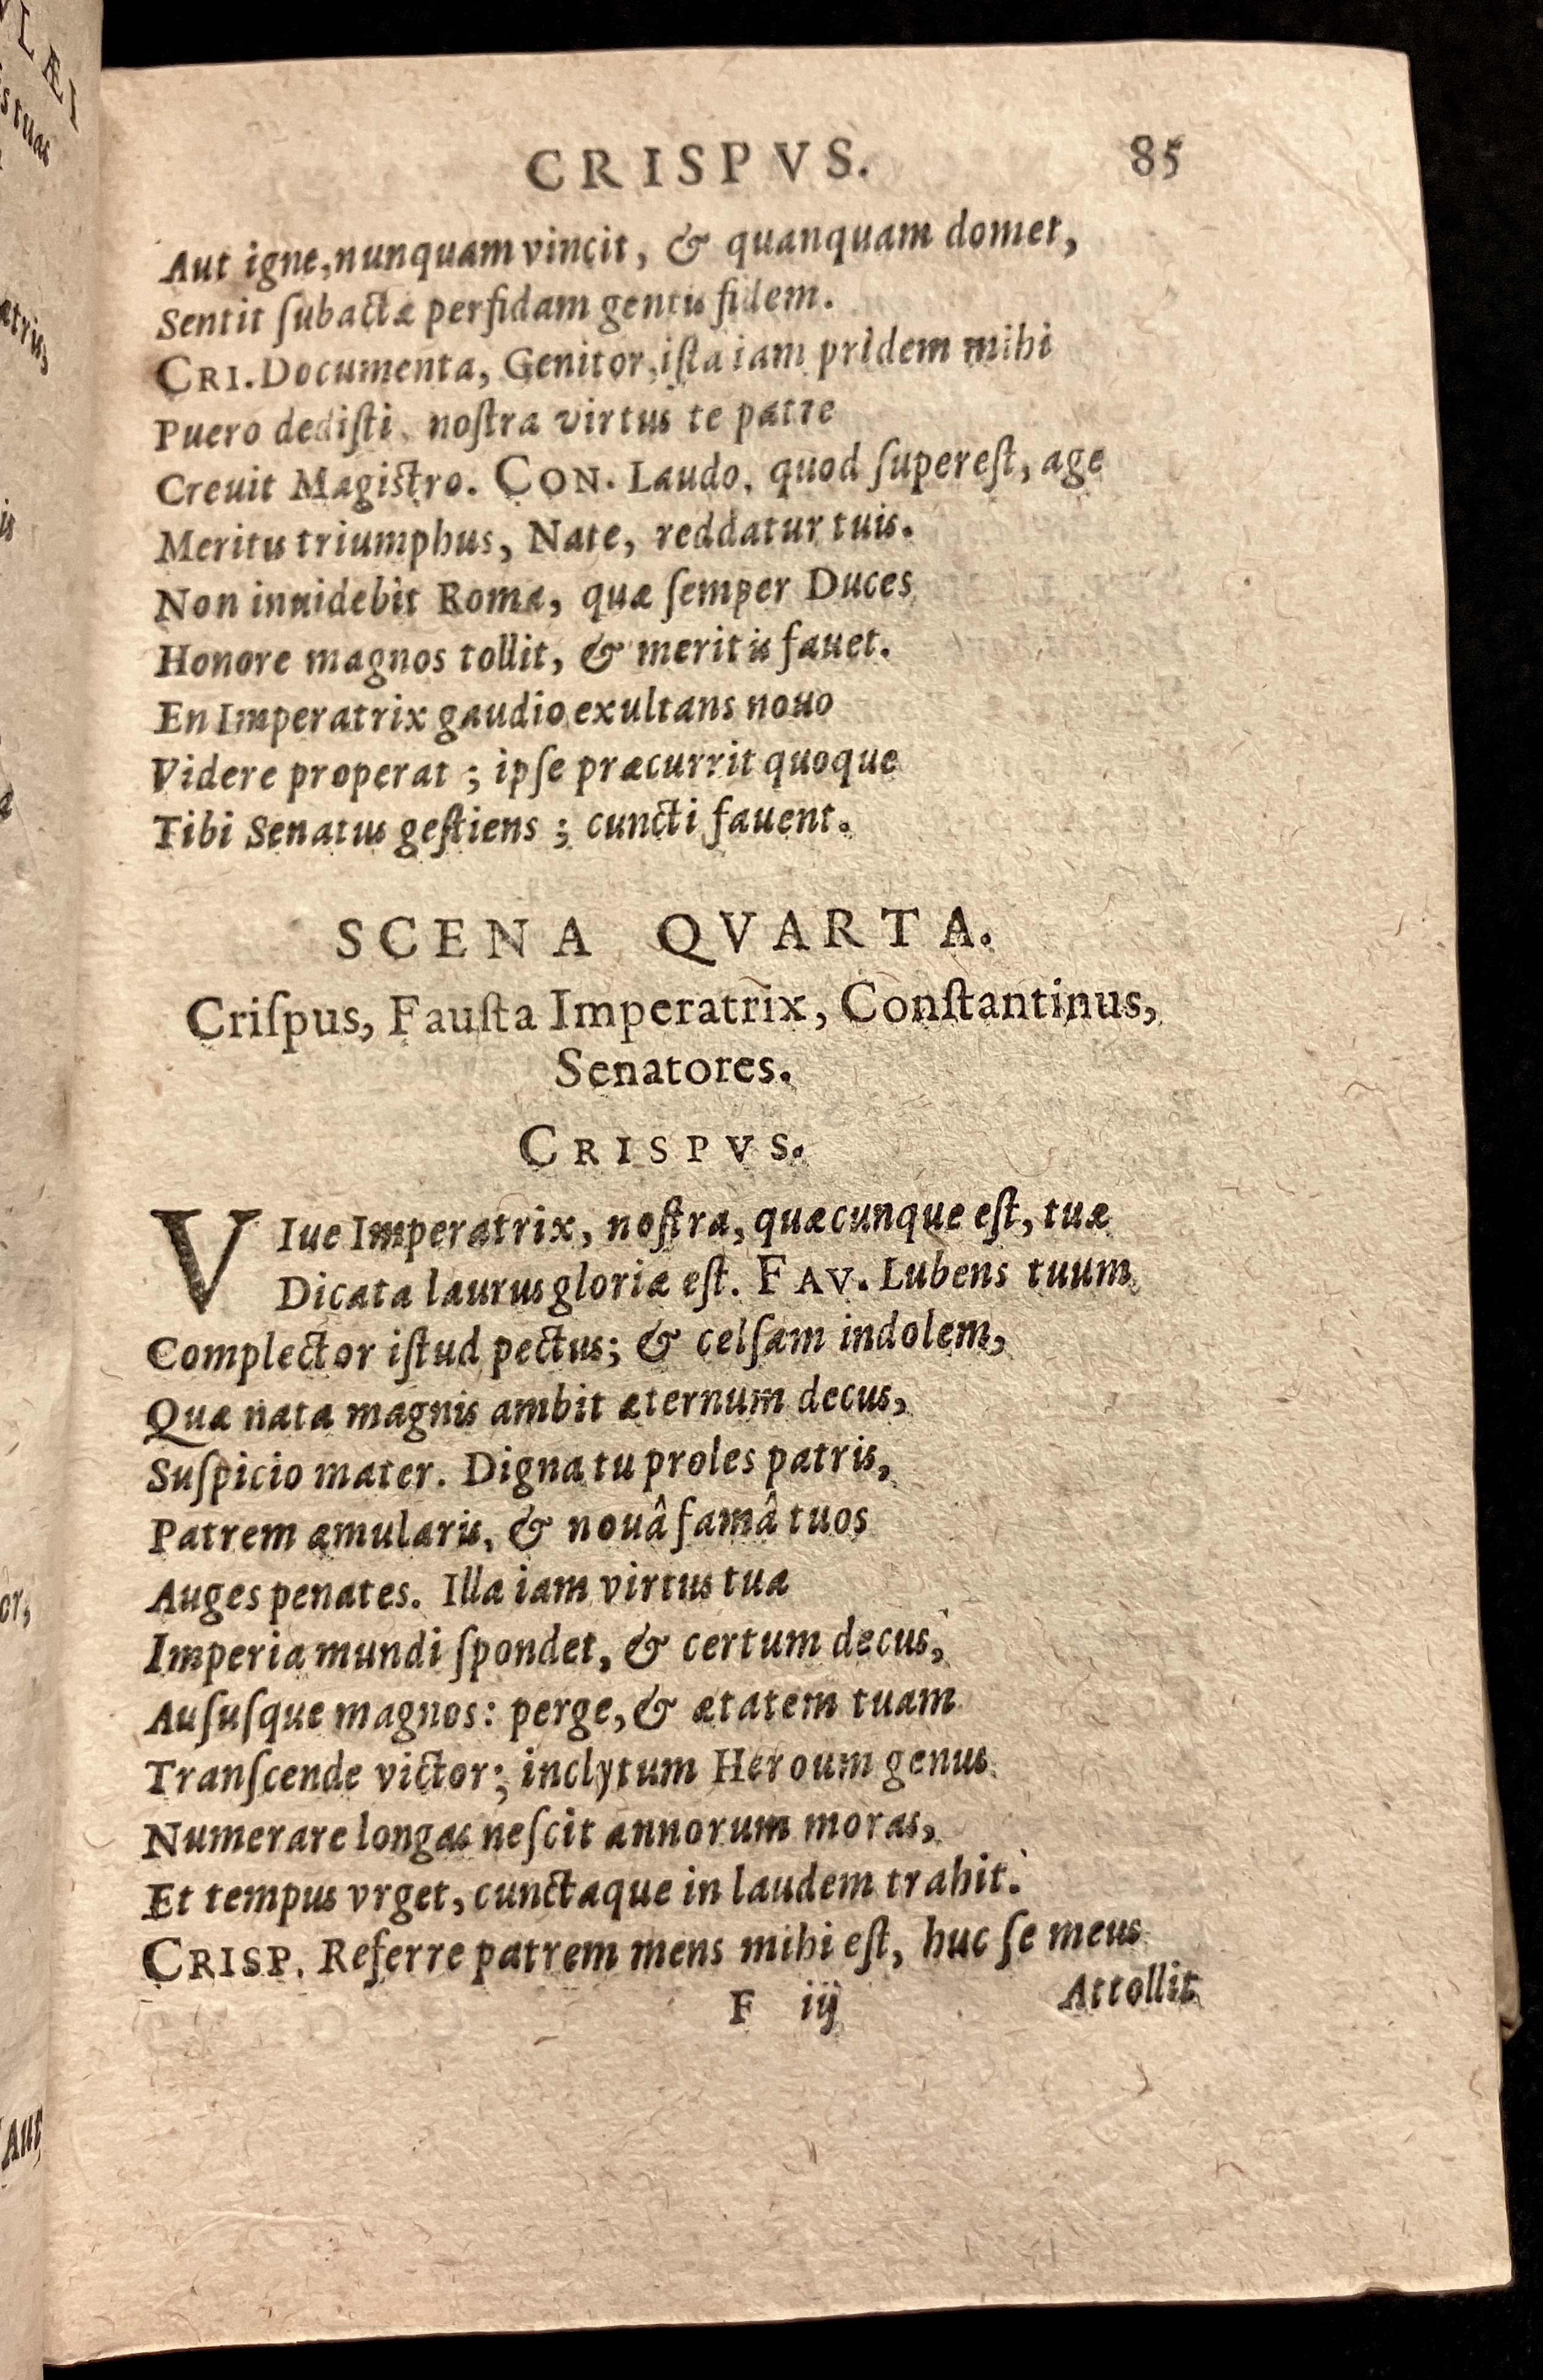 CRISPVS. 85
Aut igne, nunquam vincit, & quanquam domet,
Sentit ſubactæ perfidam gentis fidem.
CRI. Documenta, Genitor, iſta iam pridem mihi
Puero dediſti, noſtra virtus te patre
Creuit Magiſtro. CON. Laudo, quod ſupereſt, age
Meritis triumphus, Nate, reddatur tuis.
Non inuidebit Roma, quæ ſemper Duces
Honore magnos tollit, & meritis fauet.
En Imperatrix gaudio exultans nouo
Videre properat ; ipſe præcurrit quoque
Tibi Senatus geſtiens ; cuncti fauent.
SCENA QVARTA.
Criſpus, Fauſta Imperatrix, Conſtantinus,
Senatores.
CRISPVS.
VIue Imperatrix, noſtra, quæcunque eſt, tuæ
Dicata laurus gloriæ eſt. FAV. Lubens tuum
Complector iſtud pectus; & celſam indolem,
Quæ nata magnis ambit æternum decus,
Suſpicio mater. Digna tu proles patris,
Patrem æmularis, & nouâ famâ tuos
Auges penates. Illa iam virtus tua
Imperia mundi ſpondet, & certum decus,
Auſuſque magnos: perge, & ætatem tuam
Tranſcende victor; inclytum Heroum genus
Numerare longas neſcit annorum moras,
Et tempus vrget, cunctaque in laudem trahit.
CRISP. Referre patrem mens mihi eſt, huc ſe meus
F iij Attollit